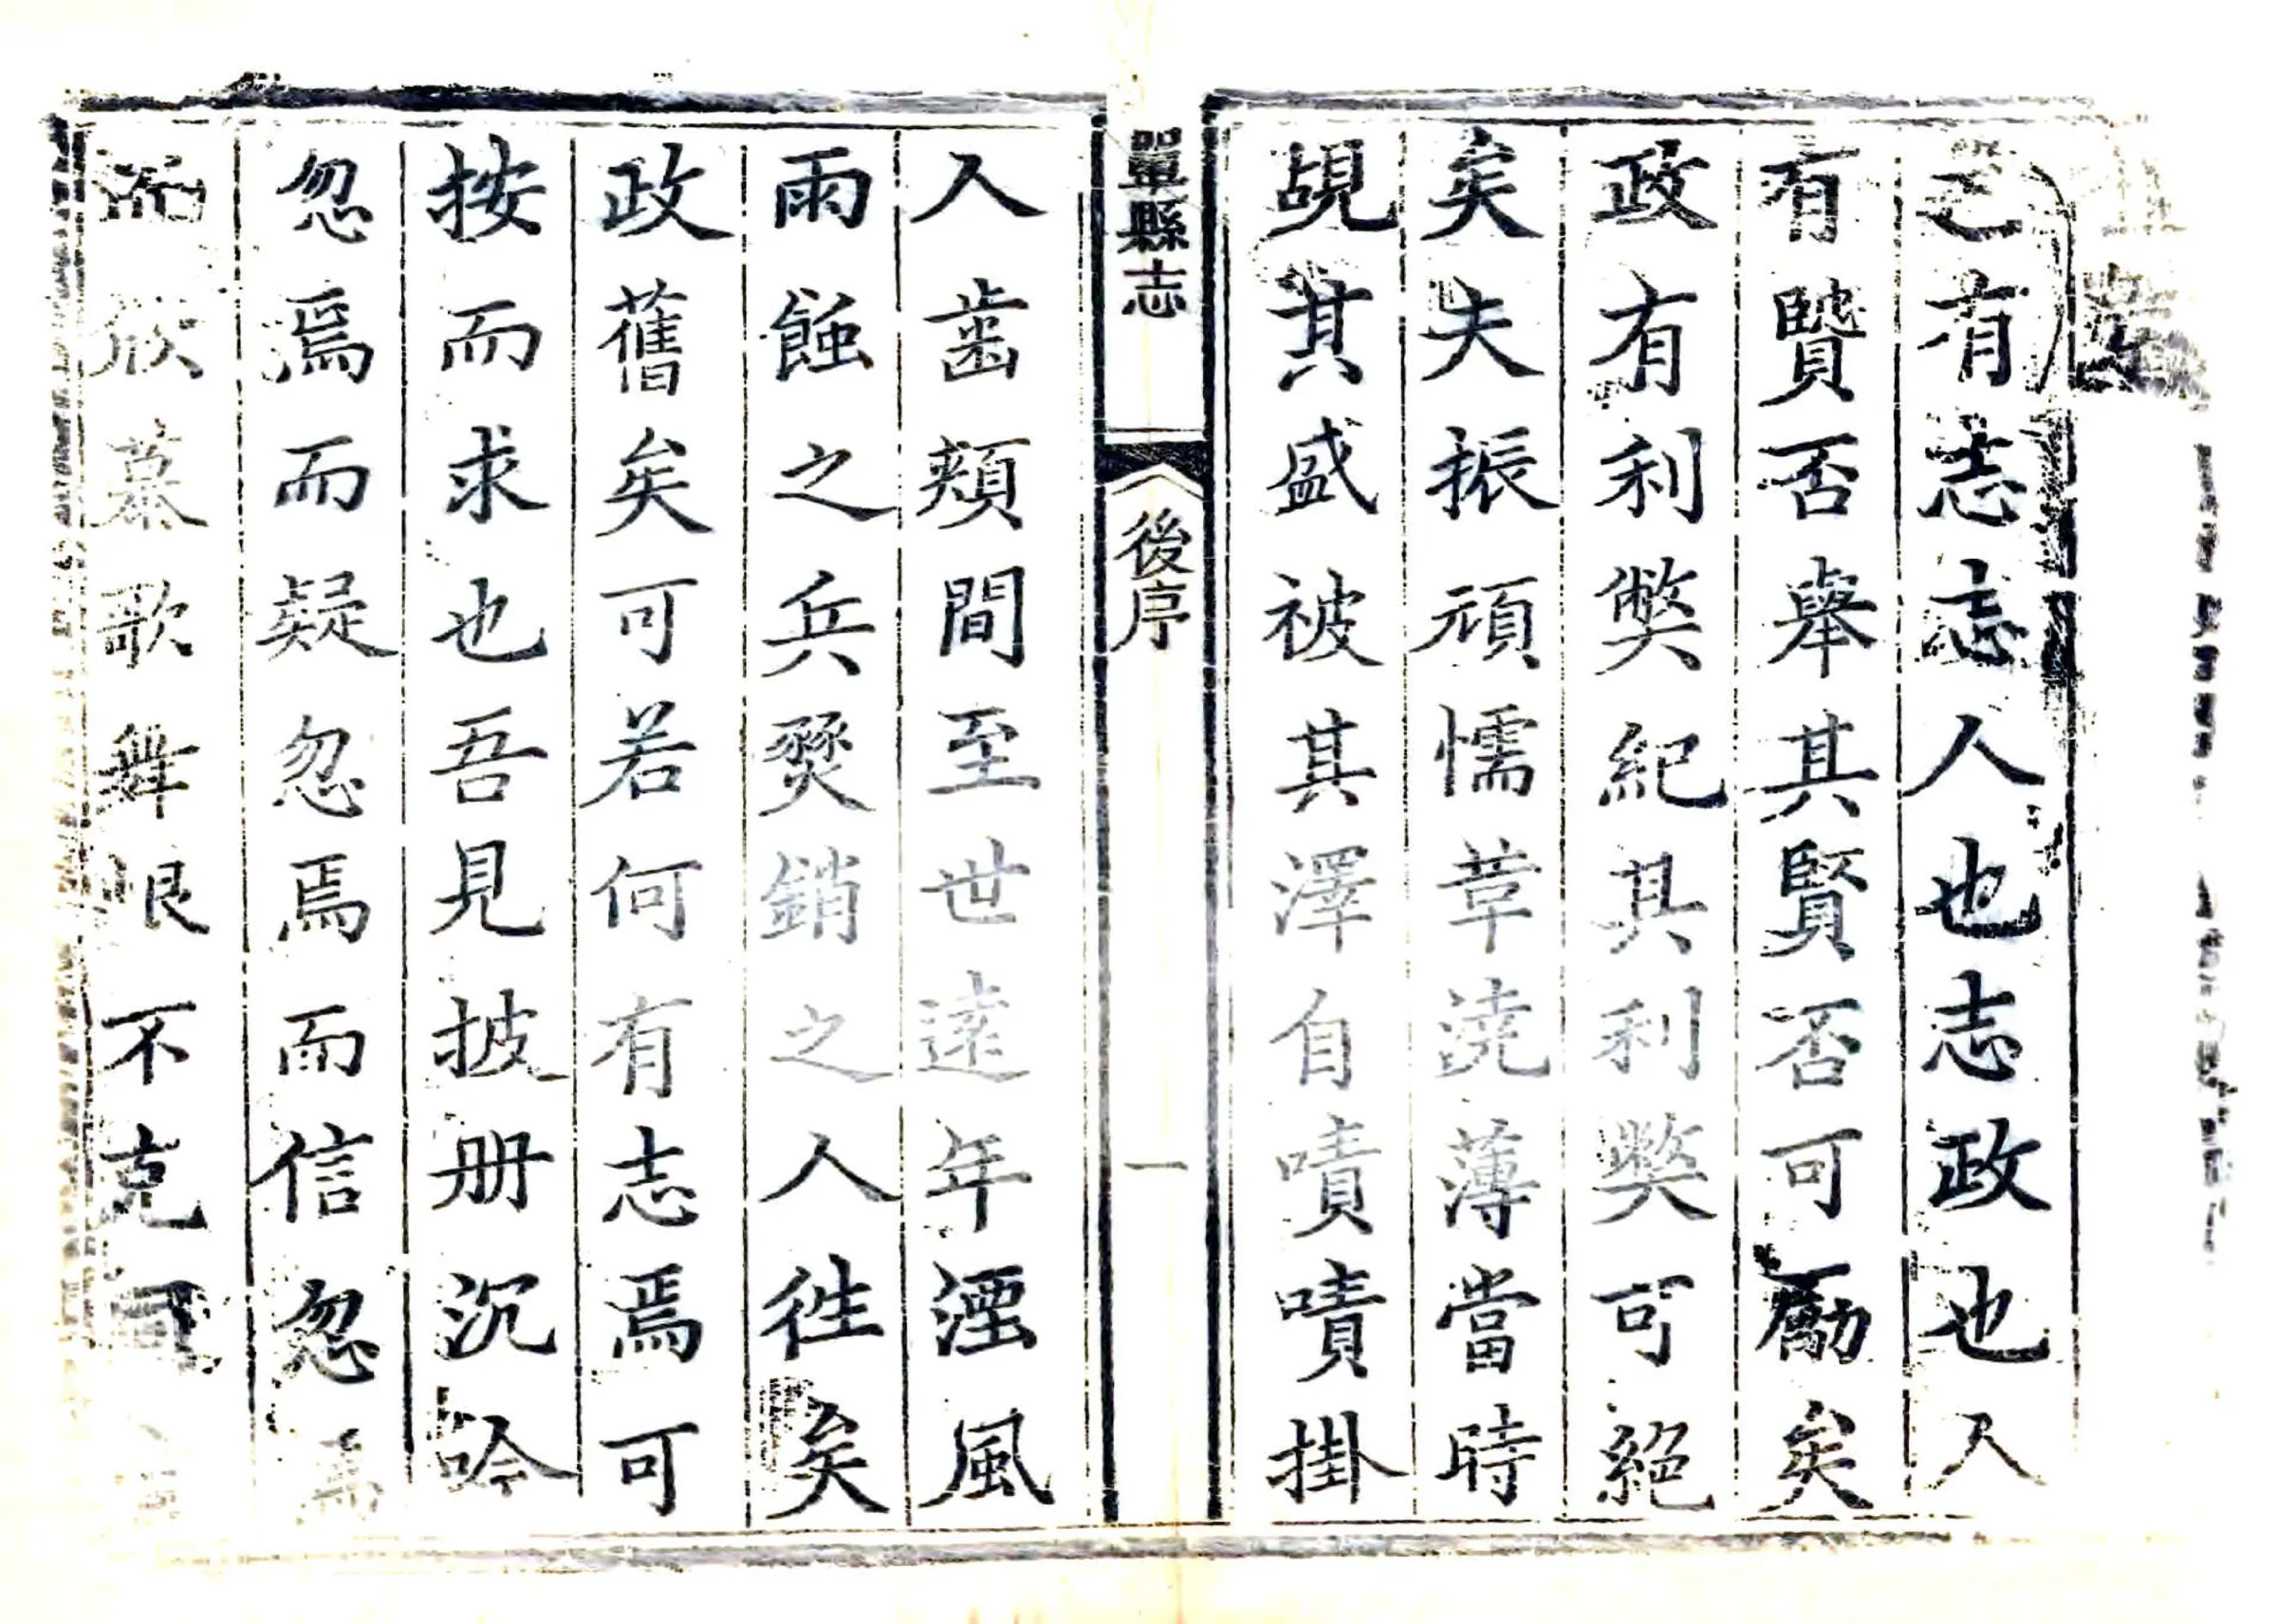 邑有志志人也志政也人
有賢否舉其賢否可勵矣
政有利弊紀其利弊可絕
矣夫振頑懦革澆薄當時
覩其盛被其澤自嘖嘖掛
單縣志
後序
一
人齒頰間至世遠年湮風
雨蝕之兵燹銷之人徃矣
政舊矣可若何有志焉可
按而求也吾見披册沉吟
忽焉而疑忽焉而信忽焉
而欣慕歌舞恨不克